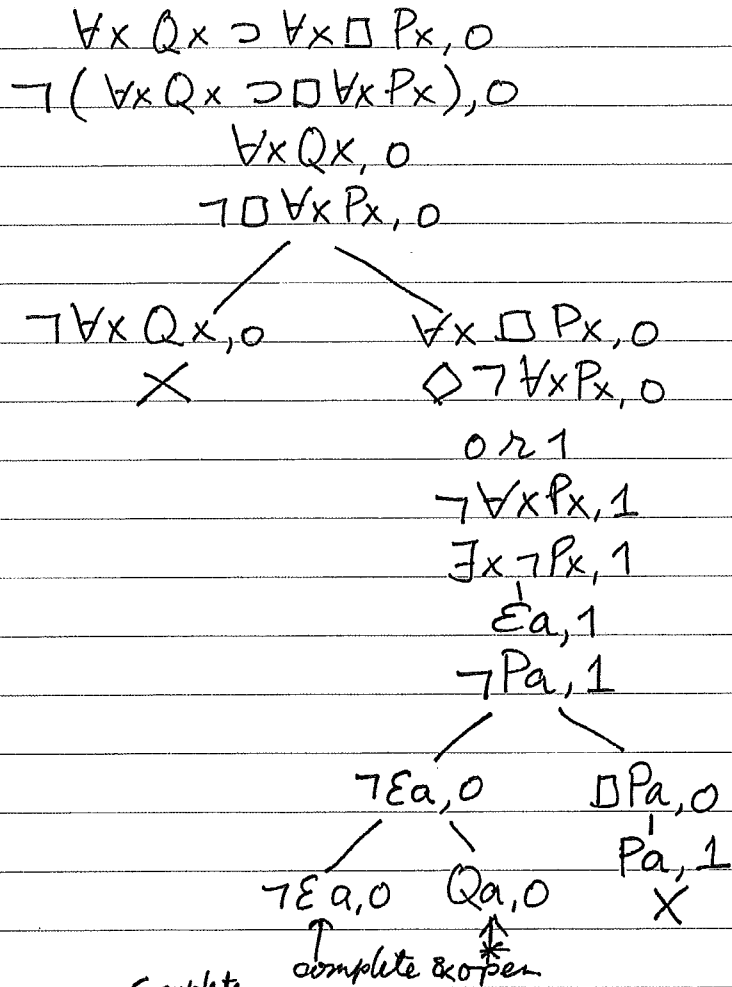 ∀x Qx ⊃ ∀x □ Px, 0
¬(∀x Qx ⊃ □ ∀x Px), 0
∀x Qx, 0
¬□ ∀x Px, 0
¬∀x Qx, 0 ∀x □ Px, 0
× ◇¬∀x Px, 0
0 r 1
¬∀x Px, 1
∃x ¬Px, 1
Ɛa, 1
¬Pa, 1
¬Ɛa, 0 □Pa, 0
Pa, 1
¬Ɛa, 0 Qa, 0 ×
↑ ↑ *
complete & open